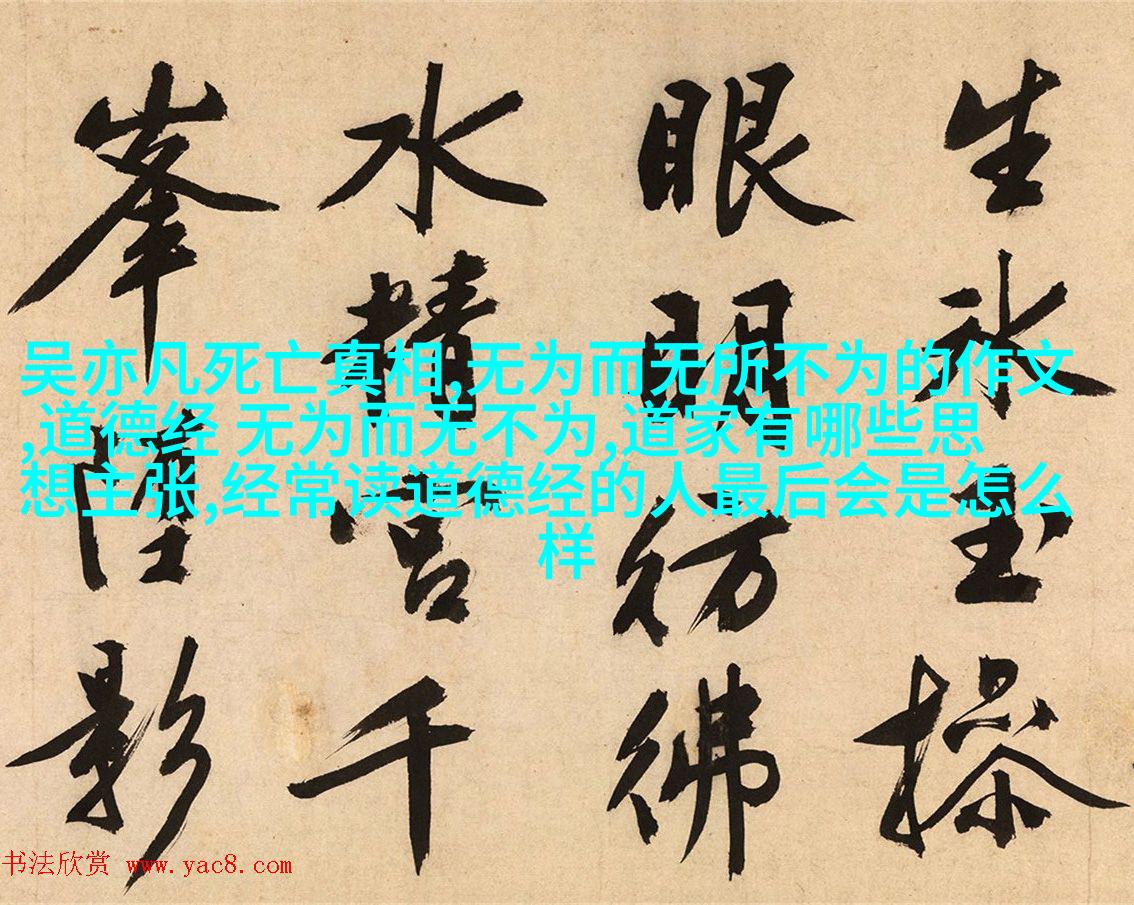 生冰玉操
眼明彷彿
水精宮千
峯影
吴亦凡死亡真相,无为而无所不为的作文
,道德经 无为而无不为,道家有哪些思
想主张,经常读道德经的人最后会是怎么
样
书法欣赏 www.yac8.com